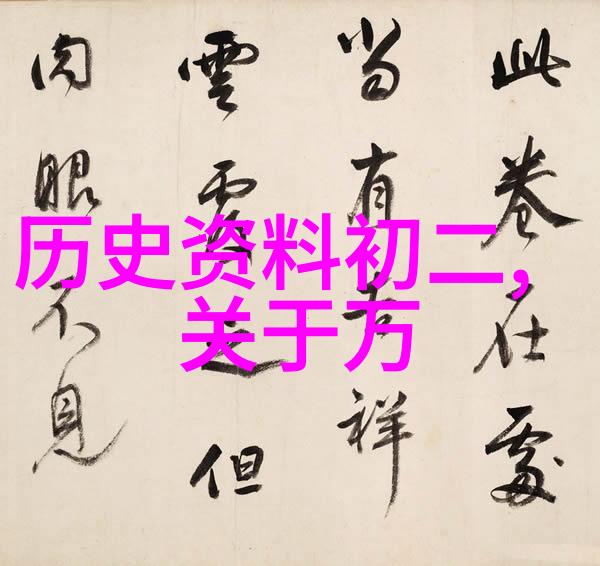 此卷在處
當有吉祥
雲覆之但
肉眼不見
历史资料初二,
关于方